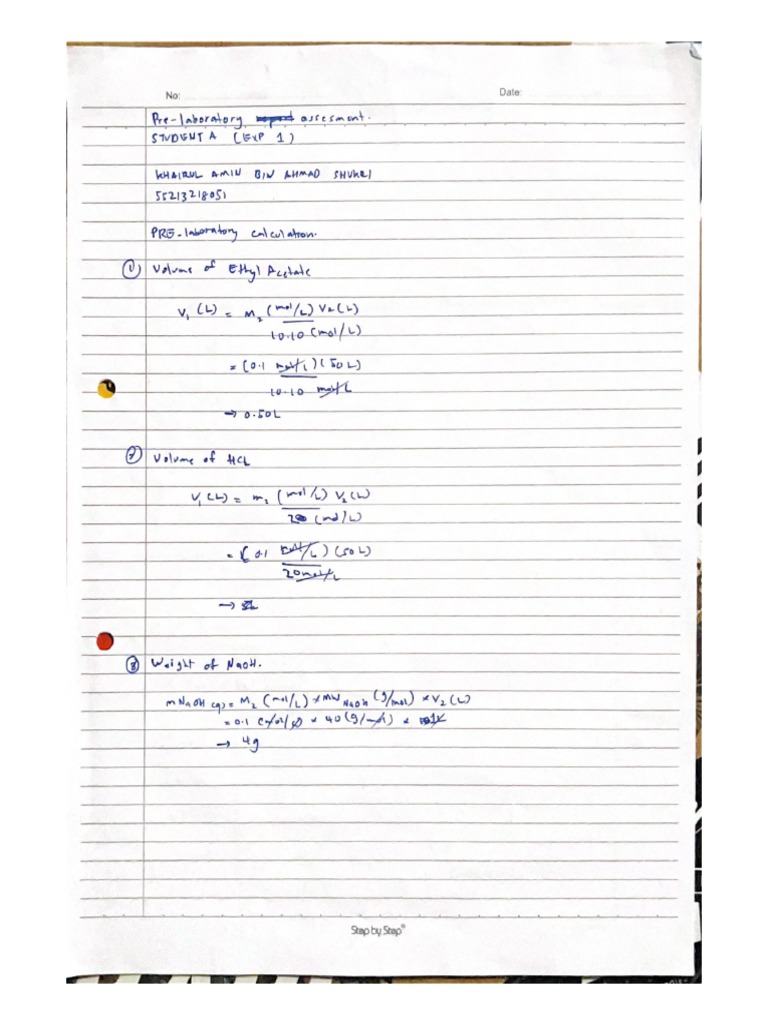 No:
Date:
Pre-laboratory assesment.
STUDENT A (EXP 1)
KHAIRUL AMIN BIN AHMAD SHUKRI
55213218051
PRE-laboratory calculation.
① Volume of Ethyl Acetate
V₁ (L) = M₂ (mol/L) V₂ (L)
10.10 (mol/L)
= (0.1 mol/L) (50L)
10.10 mol/L
→ 0.50L
② Volume of HCL
V₁ (L) = m₂ (mol/L) V₂ (L)
20 (mol/L)
= (0.1 mol/L) (50L)
20 mol/L
→
③ Weight of NaOH.
mNaOH (g) = M₂ (mol/L) × MW NaOH (g/mol) × V₂ (L)
= 0.1 (mol/L) × 40 (g/mol) × 1L
→ 4g
Step by Step®